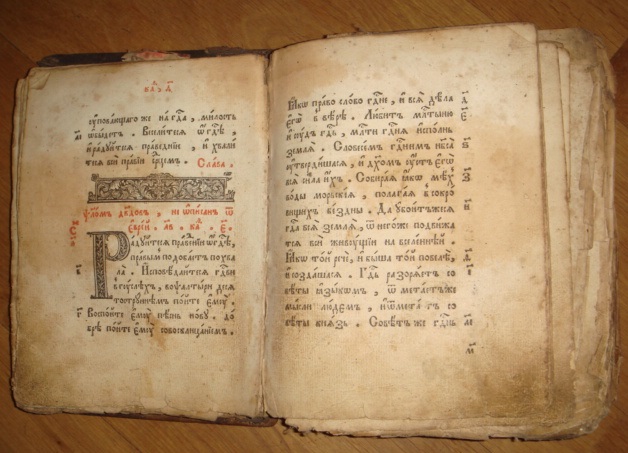 каѳ, д҃
оуповающаго же на гдⷭ҇а, милость
ѡбыдетъ. Веселитесѧ ѡ гдⷭ҇ѣ,
и҆ радꙋйтесѧ праведнїи, и҆ хвали
тесѧ вси правїи срⷣцемъ. Слава.
ѱало́мъ дв҃довъ, не ѡ҆писанъ ѿ
є҆врє́й.
Радꙋйтесѧ праведнїи ѡ гдⷭ҇ѣ,
правымъ подобаетъ похва
ла. Исповѣдайтесѧ гдⷭ҇ви
в гꙋслехъ, во ѱалтыри деса
тострꙋннѣмъ пойте є҆мꙋ.
Воспойте є҆мꙋ пѣснь новꙋ. до
брѣ пойте є҆мꙋ со восклицанїемъ.
Ꙗ҆́кѡ право слово гдⷭ҇не, и҆ всѧ дѣла
є҆гѡ̀ в вѣрѣ. Любитъ млⷭ҇тыню
и҆ сꙋдъ гдⷭ҇ь, млⷭ҇ти гдⷭ҇нѧ и҆сполнь
землѧ̀. Словесемъ гдⷭ҇нимъ нб҃са̀
ᲂу҆твердишасѧ, и҆ дх҃омъ ᲂу҆стъ є҆гѡ̀
всѧ̀ сила и҆́хъ. Собираѧ ꙗ҆́кѡ мѣхъ
воды морьскїѧ, полагаѧ в сокро
вищихъ бездны. Да ᲂу҆боитъжесѧ
гдⷭ҇а всѧ̀ землѧ̀, ѿ него же подвижа
тсѧ всѝ живꙋщїи на вселеннѣй.
Ꙗ҆́кѡ то́й речѐ, и҆ быша то́й повелѣ̀,
и҆ создашасѧ. Гдⷭ҇ь разорѧетъ со
вѣты ꙗ҆зы́комъ, ѿметаетъже
мысли людемъ, и҆ ѿметаетъ со
вѣты кнѧзь. Совѣтъ же гдⷭ҇нь